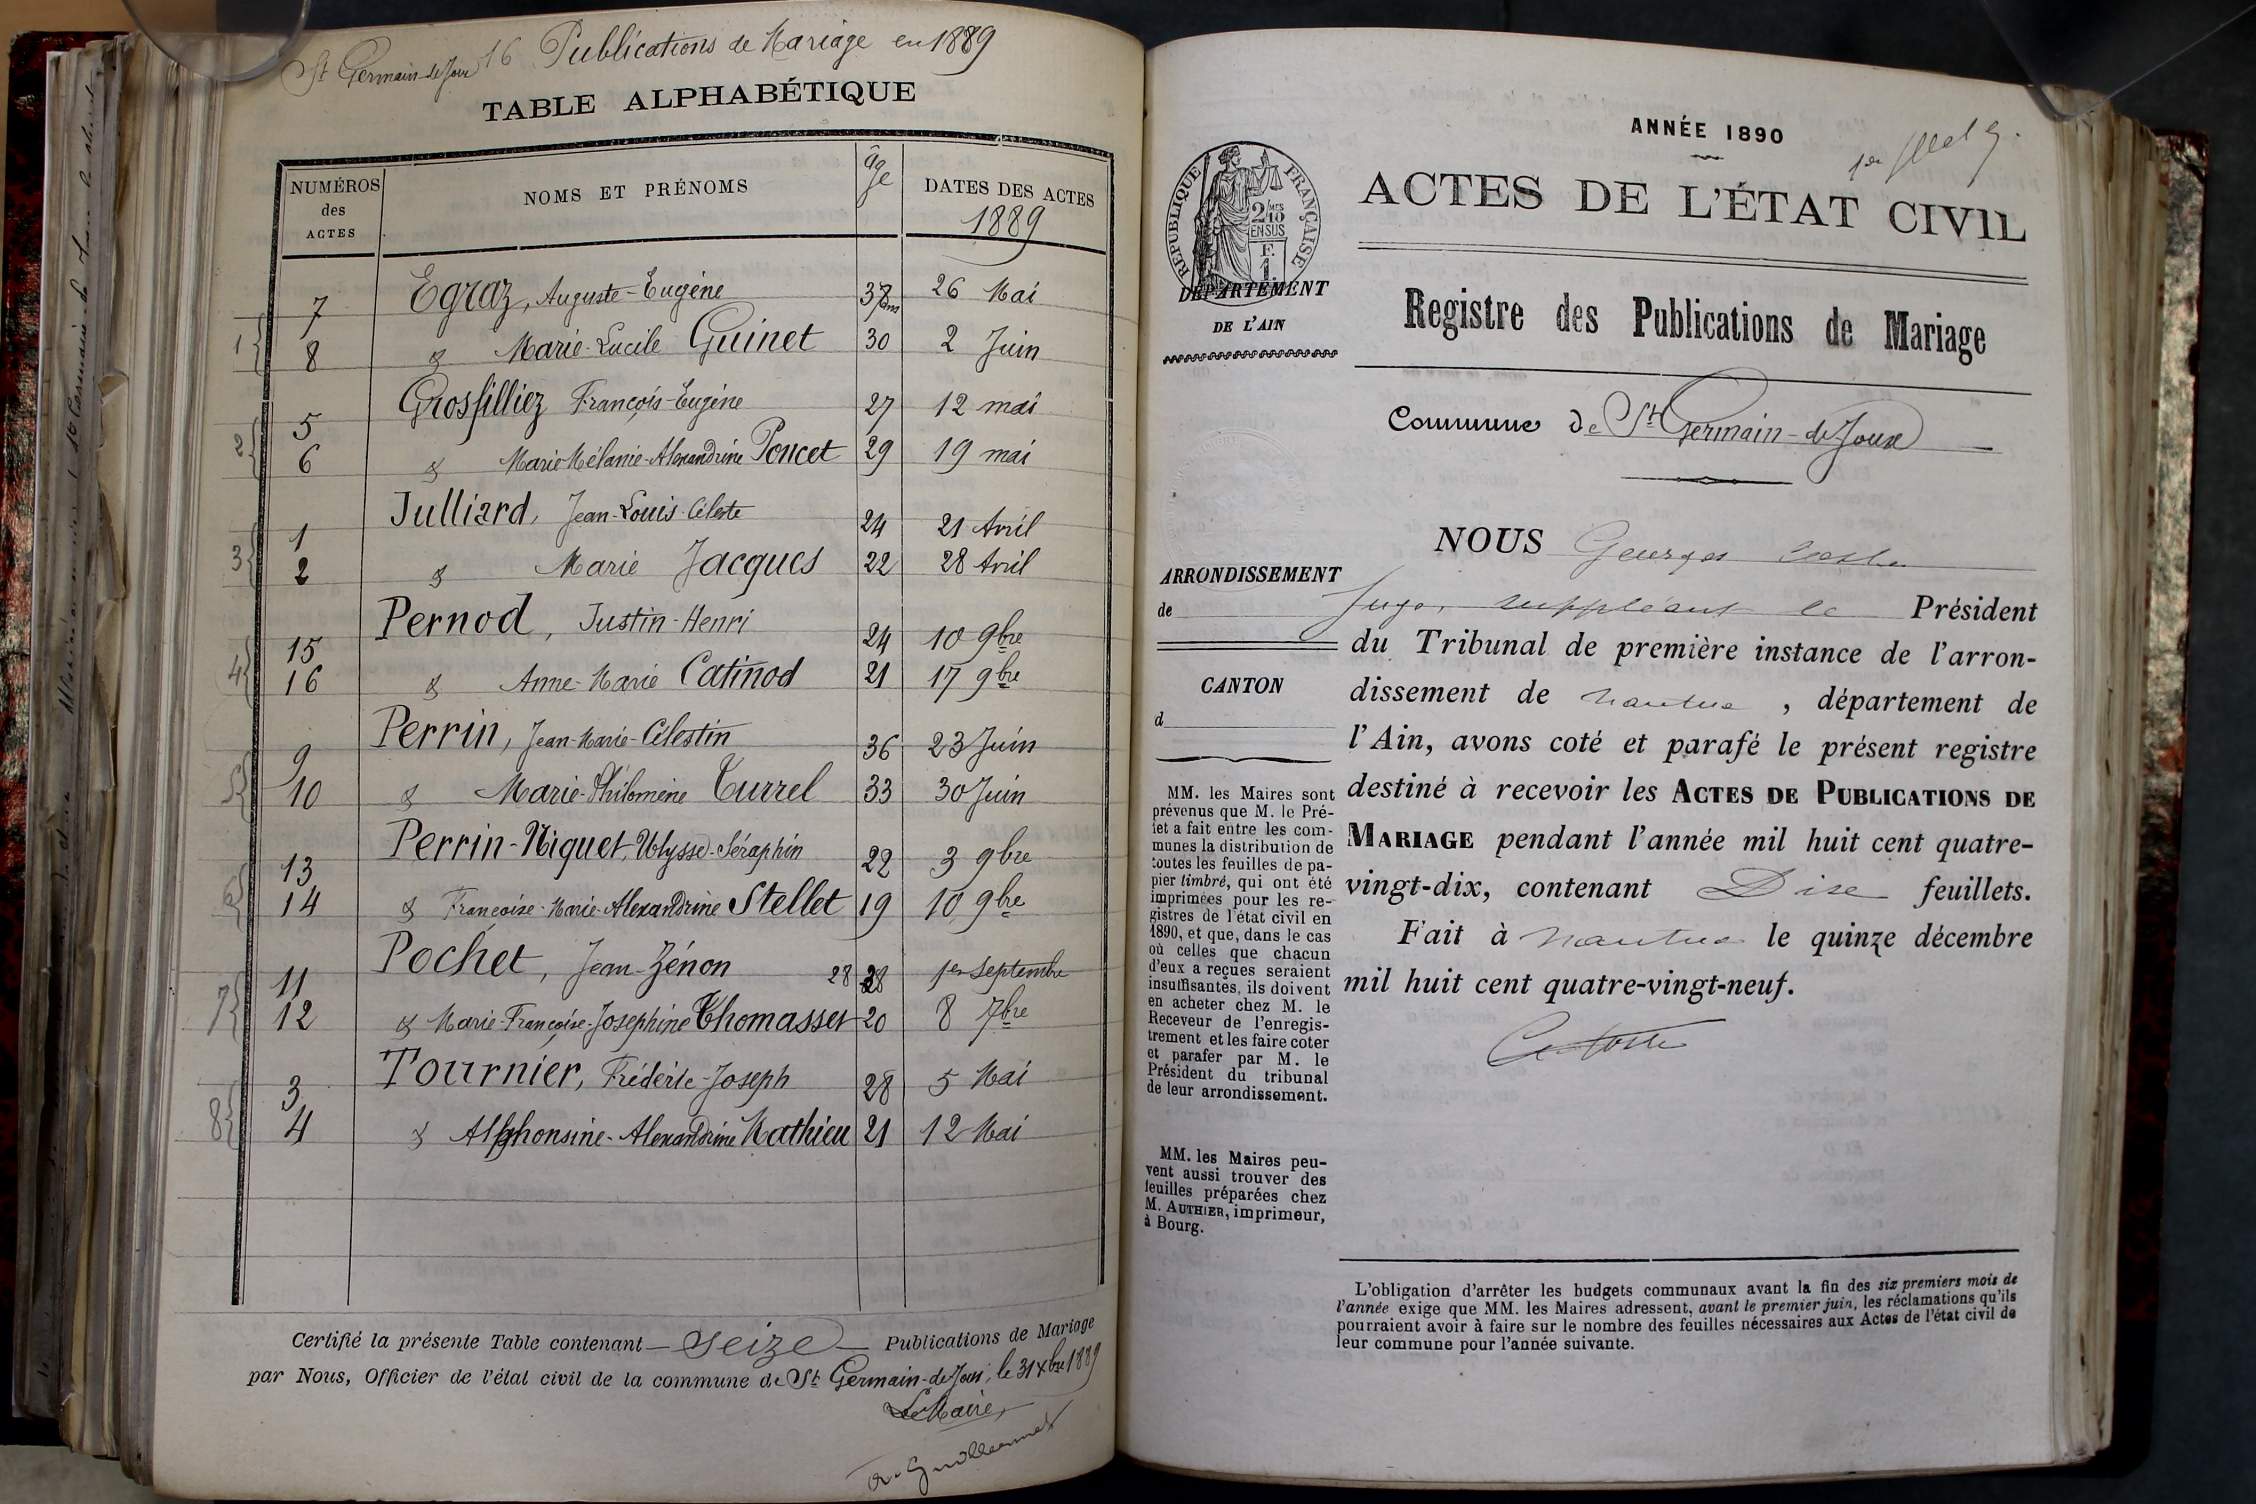 St Germain-de-Joux 16 Publications de Mariage en 1889
TABLE ALPHABÉTIQUE
NUMÉROS des ACTES
NOMS ET PRÉNOMS
âge
DATES DES ACTES
1889
7 Egraz, Auguste-Eugène 37 ans 26 Mai
1 { 8 & Marie-Lucile Guinet 30 2 Juin
5 Grosfilliez François-Eugène 27 12 mai
2 { 6 & Marie Mélanie-Alexandrine Poncet 29 19 mai
1 Julliard, Jean-Louis-Céleste 24 21 Avril
3 { 2 & Marie Jacques 22 28 Avril
15 Pernod, Justin-Henri 24 10 9bre
4 { 16 & Anne-Marie Catinod 21 17 9bre
9 Perrin, Jean-Marie-Célestin 36 23 Juin
5 { 10 & Marie-Philomène Turrel 33 30 Juin
13 Perrin-Niquet, Ulysse-Séraphin 22 3 9bre
6 { 14 & Françoise-Marie-Alexandrine Stellet 19 10 9bre
11 Pochet, Jean-Zénon 28 28 1er septembre
7 { 12 & Marie-Françoise-Josephine Thomasset 20 8 7bre
3 Tournier, Frédéric-Joseph 28 5 Mai
8 { 4 & Alphonsine-Alexandrine Mathieu 21 12 Mai
Certifié la présente Table contenant seize Publications de Mariage
par Nous, Officier de l'état civil de la commune de St Germain-de-Joux, le 31 Xbre 1889
Le Maire,
ANNÉE 1890
ACTES DE L'ÉTAT CIVIL
RÉPUBLIQUE FRANÇAISE
2/10 EN SUS
F. 1.
DÉPARTEMENT
DE L'AIN
Registre des Publications de Mariage
Commune de St Germain-de-Joux
ARRONDISSEMENT
de
CANTON
d
MM. les Maires sont
prévenus que M. le Pré-
fet a fait entre les com-
munes la distribution de
toutes les feuilles de pa-
pier timbré, qui ont été
imprimées pour les re-
gistres de l'état civil en
1890, et que, dans le cas
où celles que chacun
d'eux a reçues seraient
insuffisantes, ils doivent
en acheter chez M. le
Receveur de l'enregis-
trement et les faire coter
et parafer par M. le
Président du tribunal
de leur arrondissement.
MM. les Maires peu-
vent aussi trouver des
feuilles préparées chez
M. AUTHIER, imprimeur,
à Bourg.
NOUS Georges
Juge, suppléant le Président
du Tribunal de première instance de l'arron-
dissement de Nantua, département de
l'Ain, avons coté et parafé le présent registre
destiné à recevoir les ACTES DE PUBLICATIONS DE
MARIAGE pendant l'année mil huit cent quatre-
vingt-dix, contenant Dix feuillets.
Fait à Nantua le quinze décembre
mil huit cent quatre-vingt-neuf.
L'obligation d'arrêter les budgets communaux avant la fin des six premiers mois de
l'année exige que MM. les Maires adressent, avant le premier juin, les réclamations qu'ils
pourraient avoir à faire sur le nombre des feuilles nécessaires aux Actes de l'état civil de
leur commune pour l'année suivante.